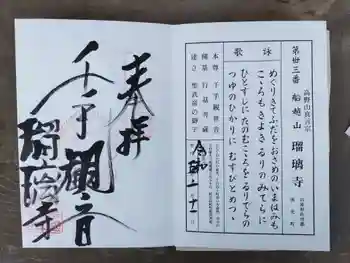 高野山真言宗
第廿三番 船越山 瑠璃寺
詠歌
めぐりきてふだをおさめのいまはみも
こころもきよきるりのみてらに
ひとすじにたのむこころをるりでらの
つゆのひかりに むすびとめつゝ
本尊 千手観世音
開基 行基菩薩
建立 聖武帝の勅宇
令和
奉拝
千手観音
瑠璃寺